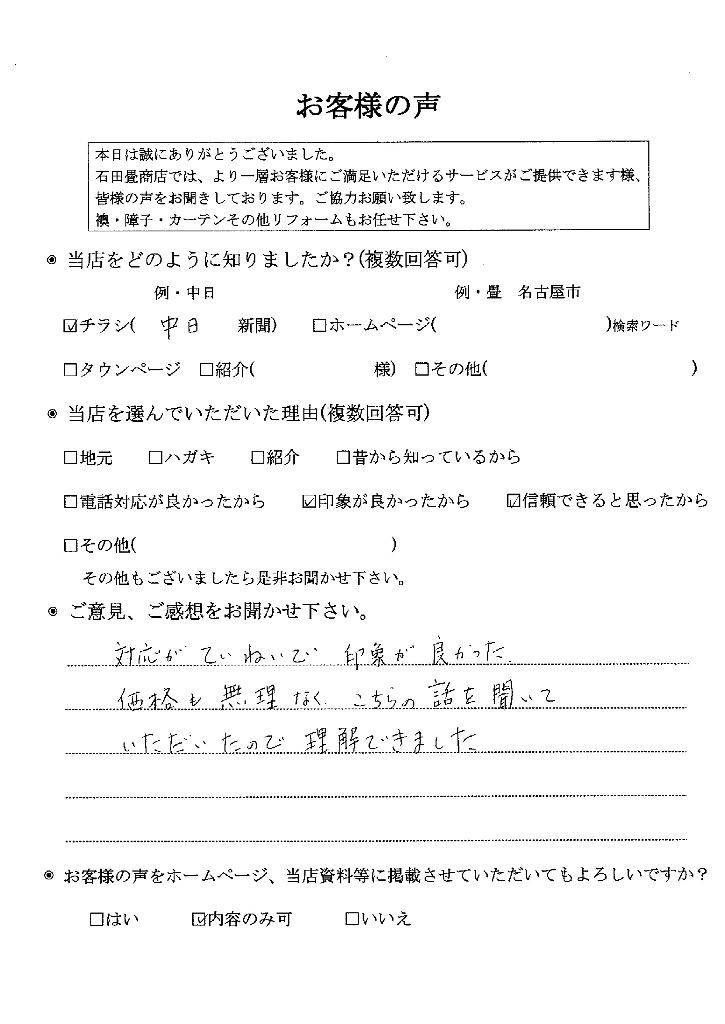 お客様の声
本日は誠にありがとうございました。
石田畳商店では、より一層お客様にご満足いただけるサービスがご提供できます様、
皆様の声をお聞きしております。ご協力お願い致します。
襖・障子・カーテンその他リフォームもお任せ下さい。
◉ 当店をどのように知りましたか？(複数回答可)
例・中日 例・畳 名古屋市
☑チラシ( 中日 新聞) □ホームページ( )検索ワード
□タウンページ □紹介( 様) □その他( )
◉ 当店を選んでいただいた理由(複数回答可)
□地元 □ハガキ □紹介 □昔から知っているから
□電話対応が良かったから ☑印象が良かったから ☑信頼できると思ったから
□その他( )
その他もございましたら是非お聞かせ下さい。
◉ ご意見、ご感想をお聞かせ下さい。
対応がていねいで 印象が良かった.
価格も無理なく. こちらの話を聞いて
いただいたので 理解できました
◉ お客様の声をホームページ、当店資料等に掲載させていただいてもよろしいですか？
□はい ☑内容のみ可 □いいえ